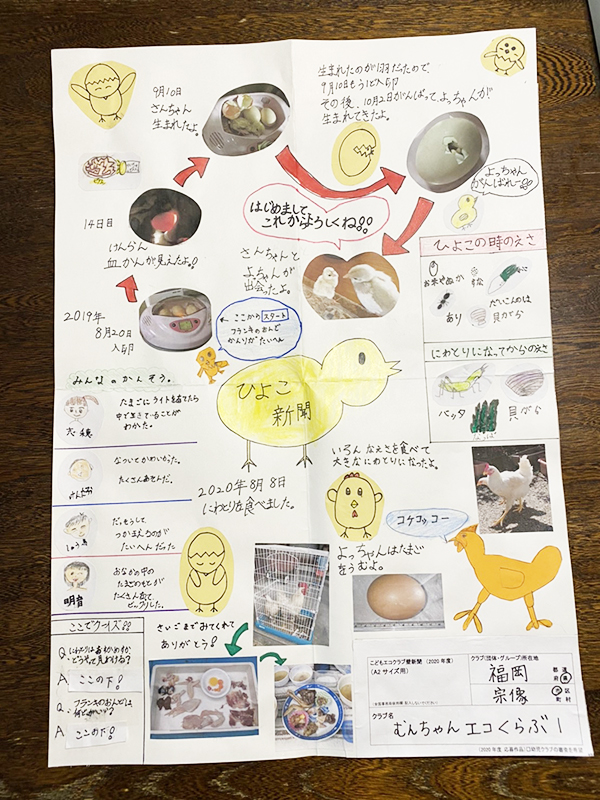 9月10日
さんちゃん
生まれたよ。
生まれたのが1羽だったので、
9月10日もう1ど入卵
その後、10月2日がんばってよっちゃんが
生まれてきたよ。
よっちゃん
がんばれー!!
14日目
けんらん
血かんが見えたよ!!
はじめまして、
これからよろしくね!!
さんちゃんと
よっちゃんが
出会ったよ。
2019年
8月20日
入卵
ここからスタート
フランキのおんど
かんりがたいへん
ひよこの時のえさ
お米やぬか
すな
あり
だいこんのは
貝がら
にわとりになってからのえさ
バッタ
貝がら
なっぱ
ひよこ
新聞
みんなのかんそう。
たまごにライトを当てたら
中で生きていることが
わかった。
なついてかわいかった。
たくさんあそんだ。
だっそうして
つかまえるのが
たいへんだった
おなかの中の
たまごのもとが
たくさんあって
ビックリした。
明音
2020年8月8日
にわとりを食べました。
いろんなえさを食べて
大きなにわとりになったよ。
コケコッコー
よっちゃんはたまご
をうむよ。
さいごまでみてくれて
ありがとう!
ここでクイズ!!
Q.にわとりはおすかめすか、
どうやって見わける?
A ここの下!
Q.フランキのおんどは
A ここの下!
こどもエコクラブ壁新聞(2020年度)
(A2サイズ用)
クラブ(団体・グループ)所在地
福岡
都道府県
宗像
市区町村
クラブ名
むんちゃんエコくらぶ1